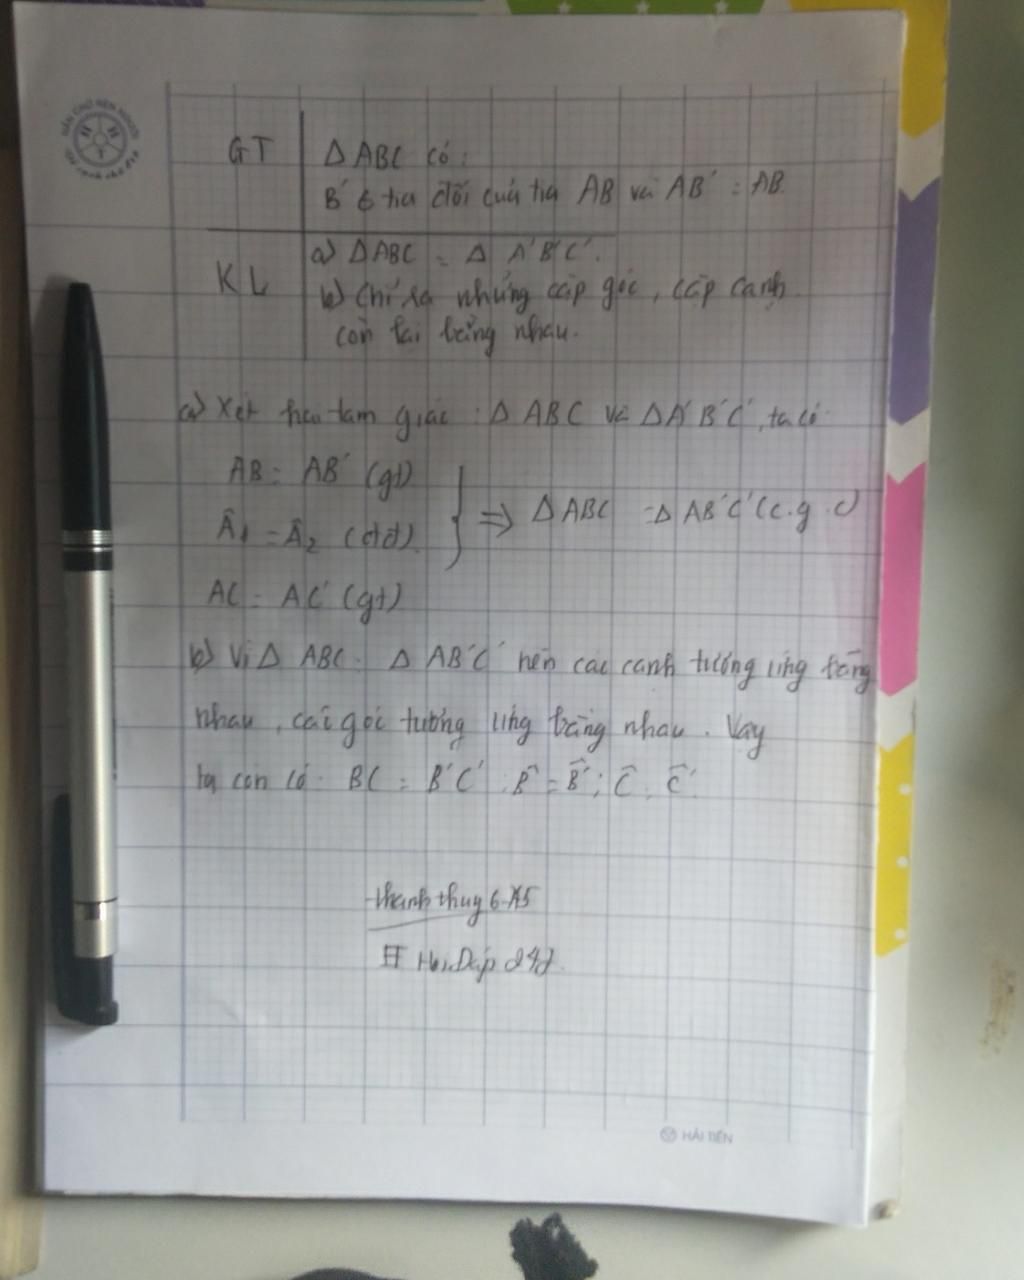 GT ΔABC có:
B' ∈ tia đối của tia AB và AB' = AB.
KL a) ΔABC = Δ A'B'C'.
b) Chỉ ra những cặp góc, cặp cạnh
còn lại bằng nhau.
a) Xét hai tam giác: Δ ABC và ΔA'B'C', ta có
AB = AB' (gt)
Â1 = Â2 (đđ)
⇒ Δ ABC = Δ AB'C' (c.g.c)
AC = AC' (gt)
b) Vì Δ ABC = Δ AB'C' nên các cạnh tương ứng bằng
nhau, các góc tương ứng bằng nhau. Vậy
ta còn có: BC = B'C'; B̂ = B̂'; Ĉ = Ĉ'.
thanh thuy 6A5
Hỏi Đáp 247
HẢI TIẾN